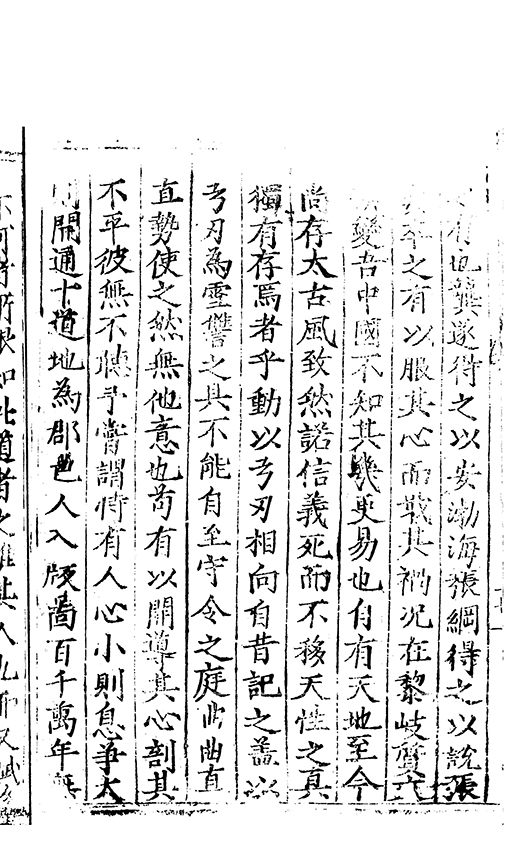 地龔遂得之以安渤海張綱得之以說張
之有以服其心而戢其禍况在黎岐賫
變吾中國不知其幾更易也自有天地至今
尚存太古風致然諾信義死而不移天性之真
獨有存焉者乎動以弓刃相向自昔記之蓋以
弓刃爲雪讐之具不能自至守令之庭此曲直
直勢使之然無他意也苟有以開導其心剖其
不平彼無不聽予嘗謂恃有人心小則息爭大
開通十道地爲郡邑人入版啚百千萬年無
如此道者之